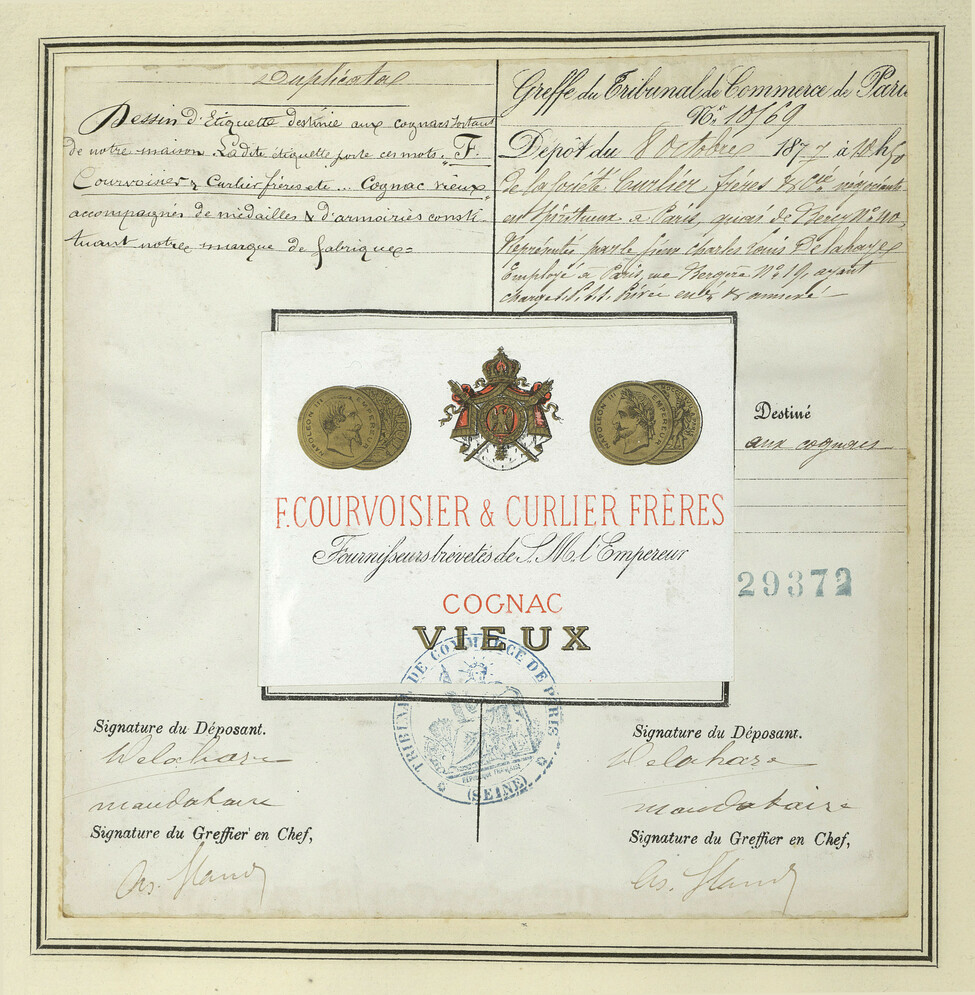 Duplicata
Dessin d'Etiquette destinée aux cognacs sortant
de notre maison. La dite étiquette porte ces mots. "F.
Courvoisier & Curlier frères etc ... Cognac vieux"
accompagnés de médailles & d'armoiries consti
tuant notre marque de fabrique=
Greffe du Tribunal de Commerce de Paris
No. 10169
Dépôt du 8 Octobre 1877 à
de la Société Curlier frères & Cie négociants
en spiritueux à Paris, quai de Bercy No. 40,
Représentée par le sieur Charles Louis Delahaye
Employé à Paris, rue Bergère No. 19, ayant
charge
Destiné
aux cognacs
NAPOLEON III EMPEREUR
NAPOLEON III EMPEREUR
F. COURVOISIER & CURLIER FRÈRES
Fournisseurs brevetés de S. M. l'Empereur
COGNAC
VIEUX
29372
TRIBUNAL DE COMMERCE DE PARIS
RÉPUBLIQUE FRANÇAISE
(SEINE)
Signature du Déposant.
Delahaye
mandataire
Signature du Greffier en Chef,
Signature du Déposant.
Delahaye
mandataire
Signature du Greffier en Chef,